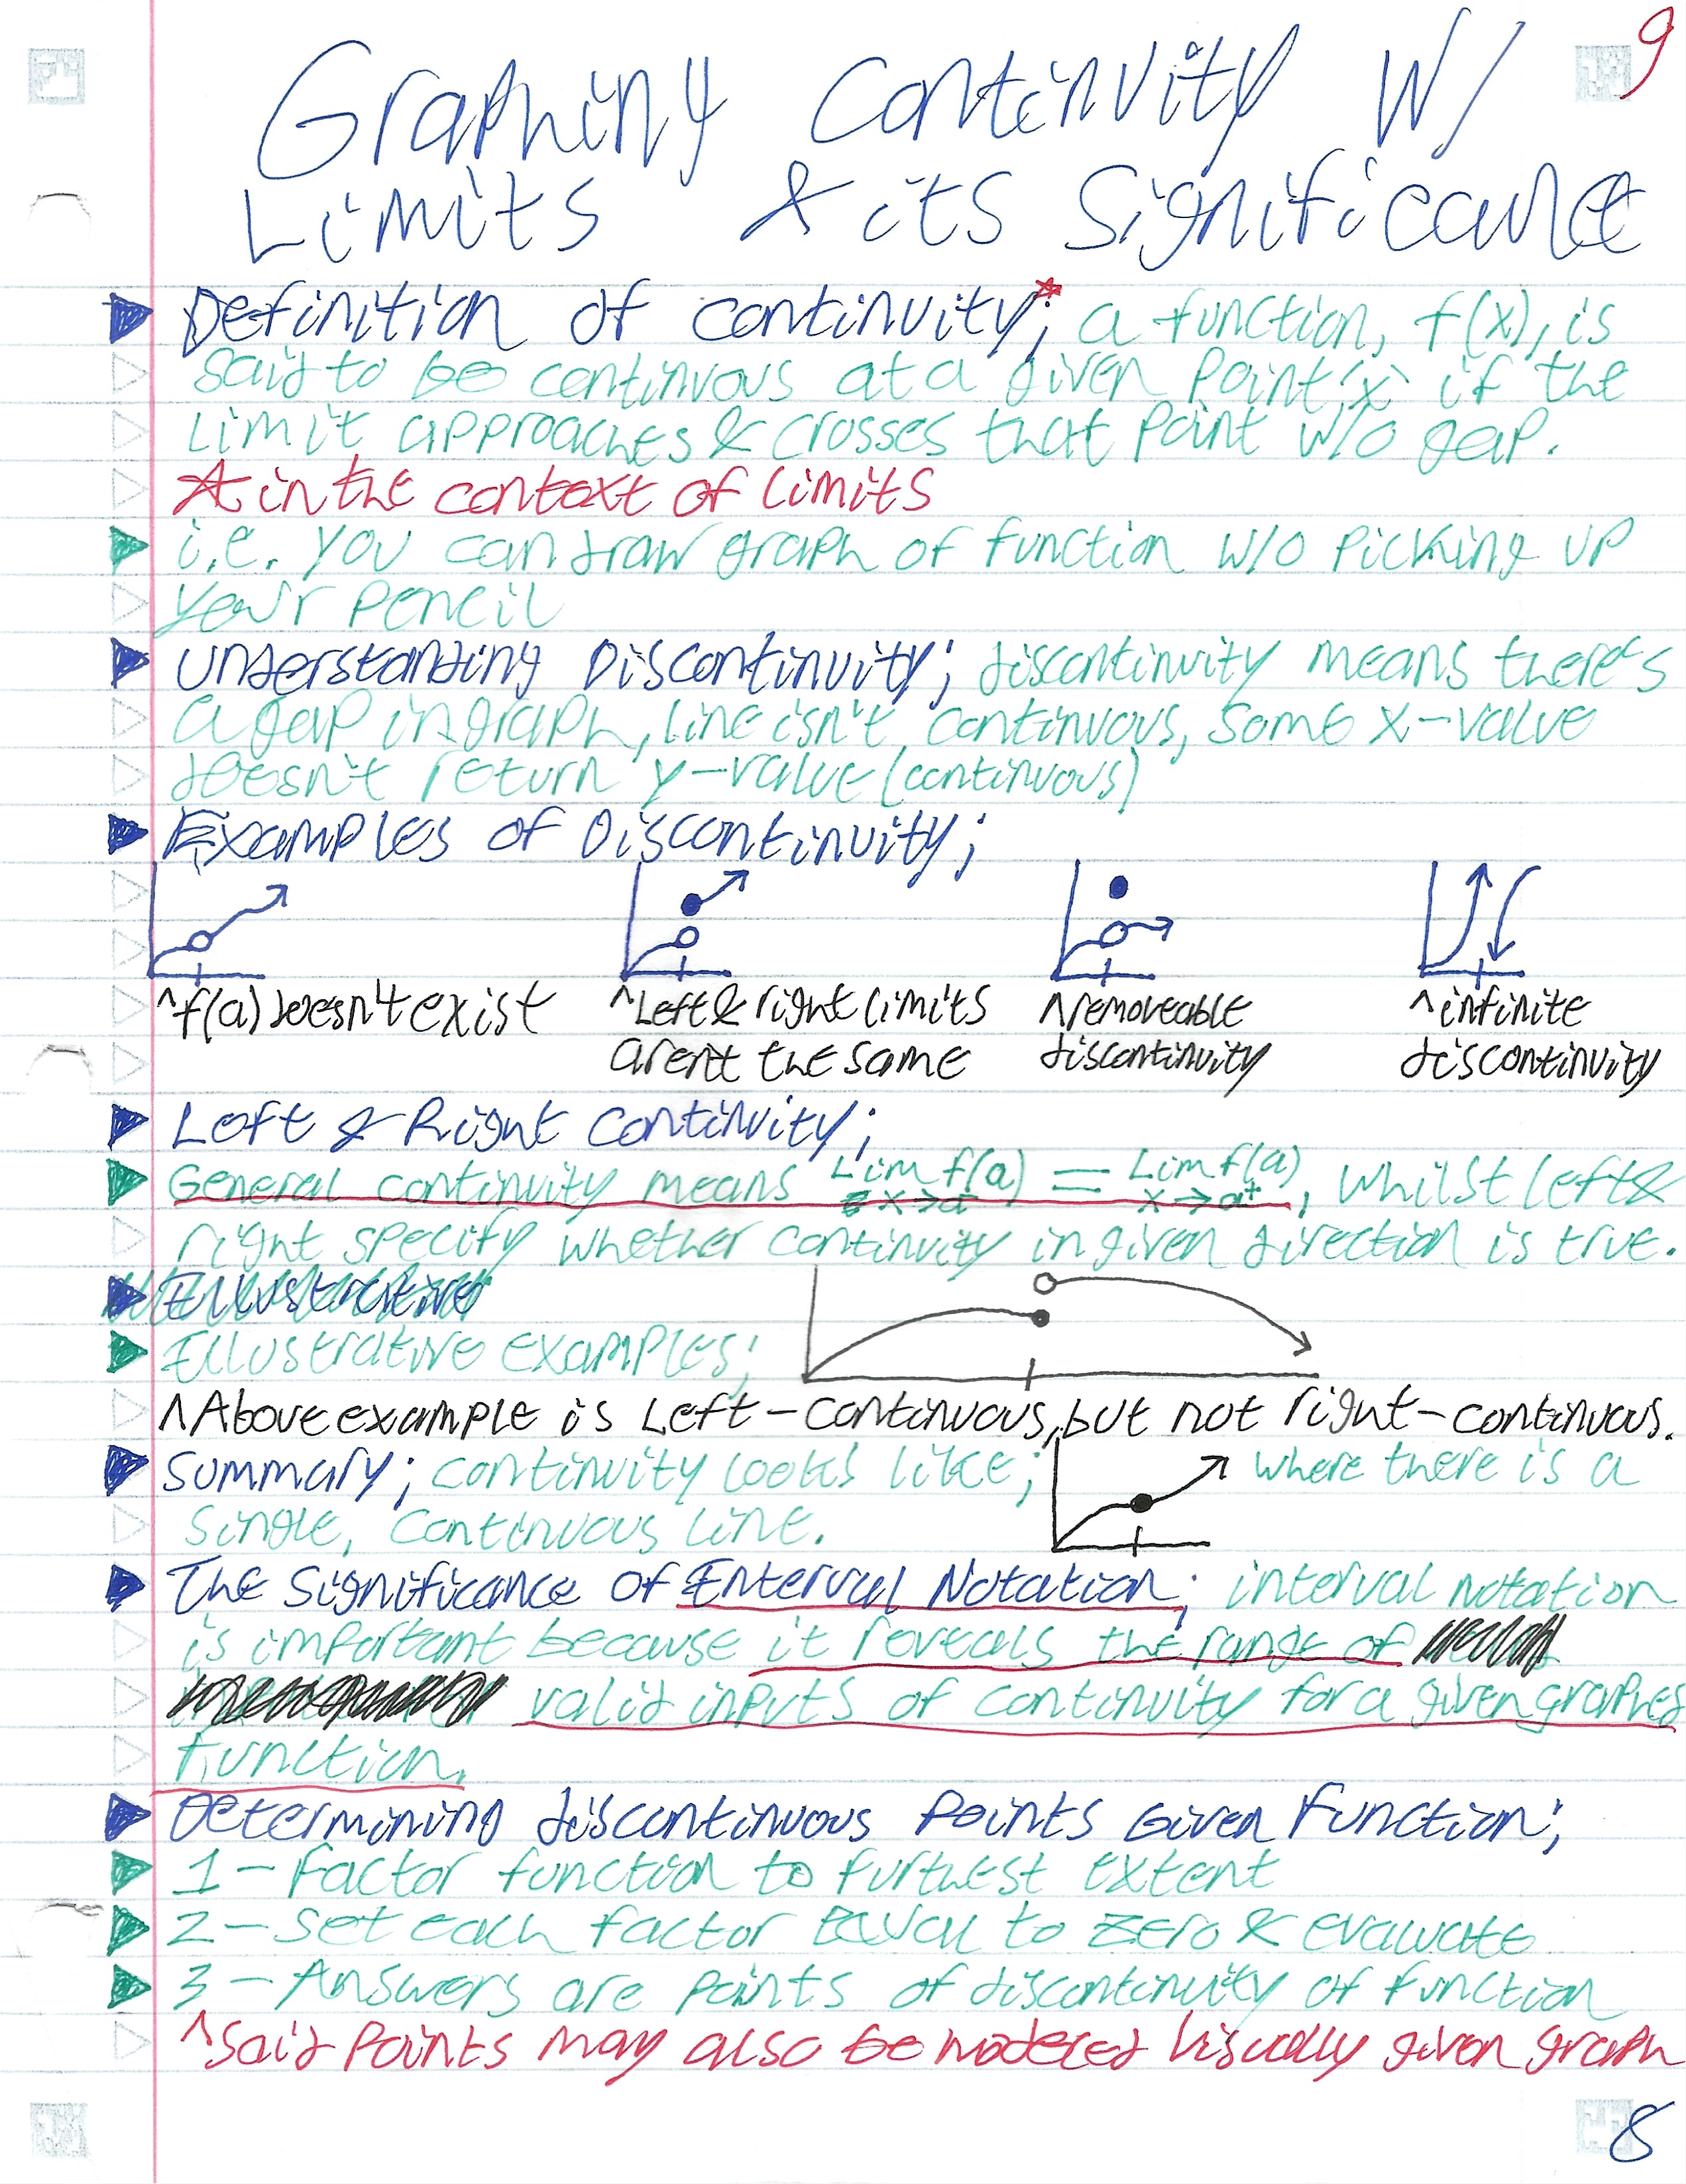 9
Graphing Continuity W/
Limits & its Significance
Definition of continuity;* a function, f(x), is
said to be continuous at a given point 'x' if the
limit approaches & crosses that point w/o gap.
* in the context of limits
i.e. you can draw graph of function w/o picking up
your pencil
Understanding Discontinuity; discontinuity means there's
a gap in graph, line isn't continuous, some x-value
doesn't return y-value (continuous)
Examples of Discontinuity;
^f(a) doesn't exist ^Left & right limits ^removeable ^infinite
aren't the same discontinuity discontinuity
Left & Right Continuity;
General continuity means Lim f(a) = Lim f(a), whilst left &
x→a⁻ x→a⁺
right specify whether continuity in given direction is true.
Illustrative
Illustrative examples;
^Above example is Left-continuous, but not right-continuous.
Summary; continuity looks like; where there is a
single, continuous line.
The Significance of Interval Notation; interval notation
is important because it reveals the range of
valid inputs of continuity for a given graphed
function.
Determining discontinuous Points Given Function;
1-Factor function to furthest extent
2-Set each factor equal to zero & evaluate
3-Answers are points of discontinuity of function
^said points may also be modeled visually given graph
8